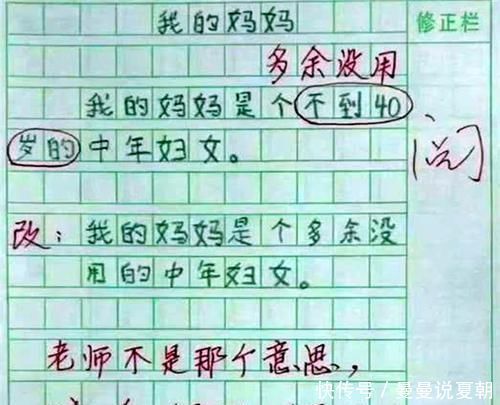 我的妈妈
修正栏
多余没用
我的妈妈是个不到40
岁的中年妇女。
阅
改：我的妈妈是个多余没
用的中年妇女。
老师不是那个意思，
快传号／曼曼说夏朝